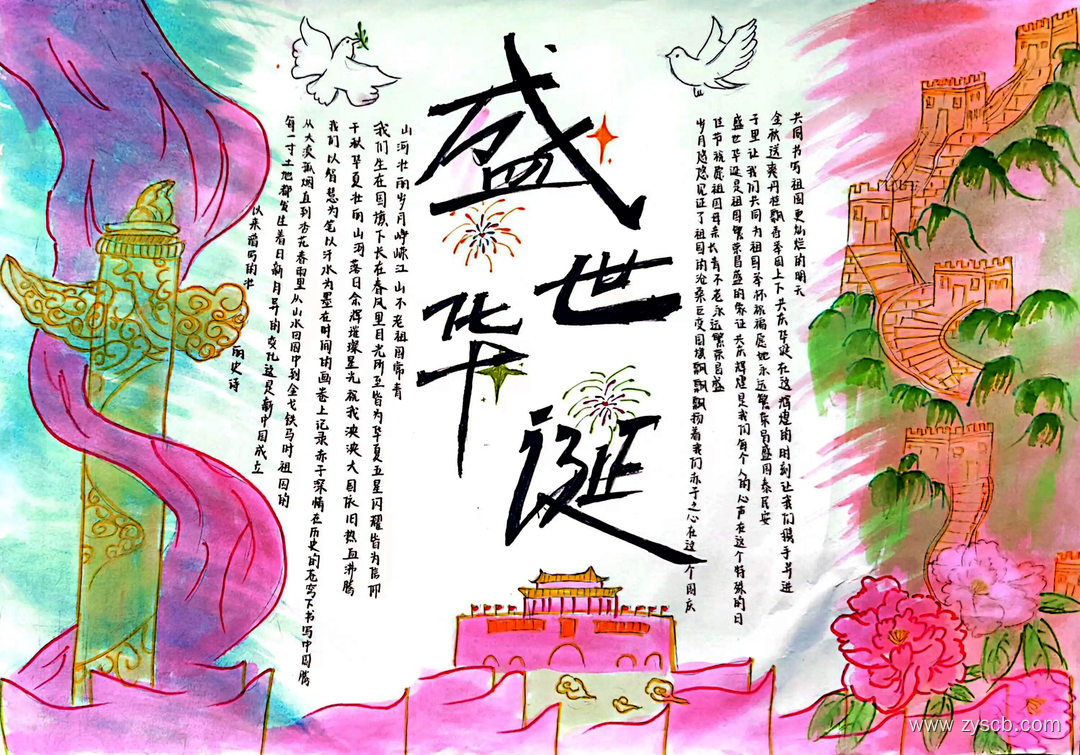 盛
世
华
诞
山河壮丽岁月峥嵘江山不老祖国常青
我们生在国旗下长在春风里目光所至皆为华夏五星闪耀皆为信仰
千秋华夏壮丽山河落日余辉璀璨星光祝我泱泱大国依旧热血沸腾
我们以智慧为笔以汗水为墨在时间的画卷上记录赤子深情在历史的苍穹下书写中国腾
从大漠孤烟直到杏花春雨里从山水田园中到金戈铁马时祖国的
每一寸土地都发生着日新月异的变化这是新中国成立
以来谱写的壮
丽史诗
岁月悠悠见证了祖国的沧桑巨变国旗飘飘飘扬着我们赤子之心在这个国庆
佳节祝愿祖国母亲长青不老永远繁荣昌盛
盛世华诞是祖国繁荣昌盛的象征共庆辉煌是我们每个人的心声在这个特殊的日
子里让我们共同为祖国举杯祝福愿她永远繁荣昌盛国泰民安
金秋送爽丹桂飘香举国上下共庆华诞在这辉煌的时刻让我们携手并进
共同书写祖国更灿烂的明天
www.zyscb.com